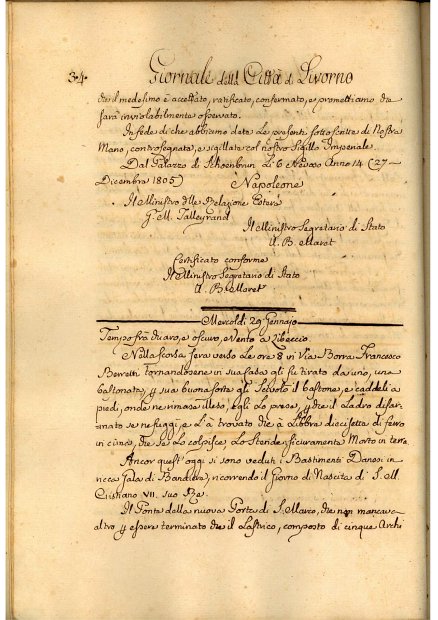 34.
Giornale della Città di Livorno
che il medesimo è accettato, ratificato, confermato, e promettiamo che
sarà inviolabilmente osservato.
In fede di che abbiamo date Le presenti sottoscritte di Nostra
Mano, controsegnate, e sigillate col nostro Sigillo Imperiale.
Dal Palazzo di Schoenbrun Li 6 Nevoso Anno 14 (27-
Dicembre 1805)
Napoleone
Il Ministro delle Relazione Estere
G. M. Talleyrand
Il Ministro Segretario di Stato
A. B. Maret
Certificato conforme
Il Ministro Segretario di Stato
A. B. Maret
Mercoldì 29 Gennajo
Tempo frà chiaro, e oscuro, Vento a Libeccio
Nella scorsa sera verso Le ore 8 in Via Borra Francesco
Berretti tornandosene in sua Casa gli fù tirato da uno, una
bastonata, e sua buona sorte gli scivolò il bastone, e caddeli a
piedi, onde ne rimase illeso, egli Lo prese, e che il Ladro disar-
mato se ne fuggì, e L'à trovato che à Libbre diecisette di ferro
in cima, che se Lo colpisce Lo stende sicuramente Morto in terra.
Ancor quest'oggi si sono veduti i Bastimenti Danesi in
ricca Gala di Bandiere, ricorrendo il Giorno di Nascita di S. M.
Cristiano VII. suo Re.
Il Ponte della nuova Porta di S. Marco, che non mancava
altro p essere terminato che il Lastrico, composto di cinque Archi